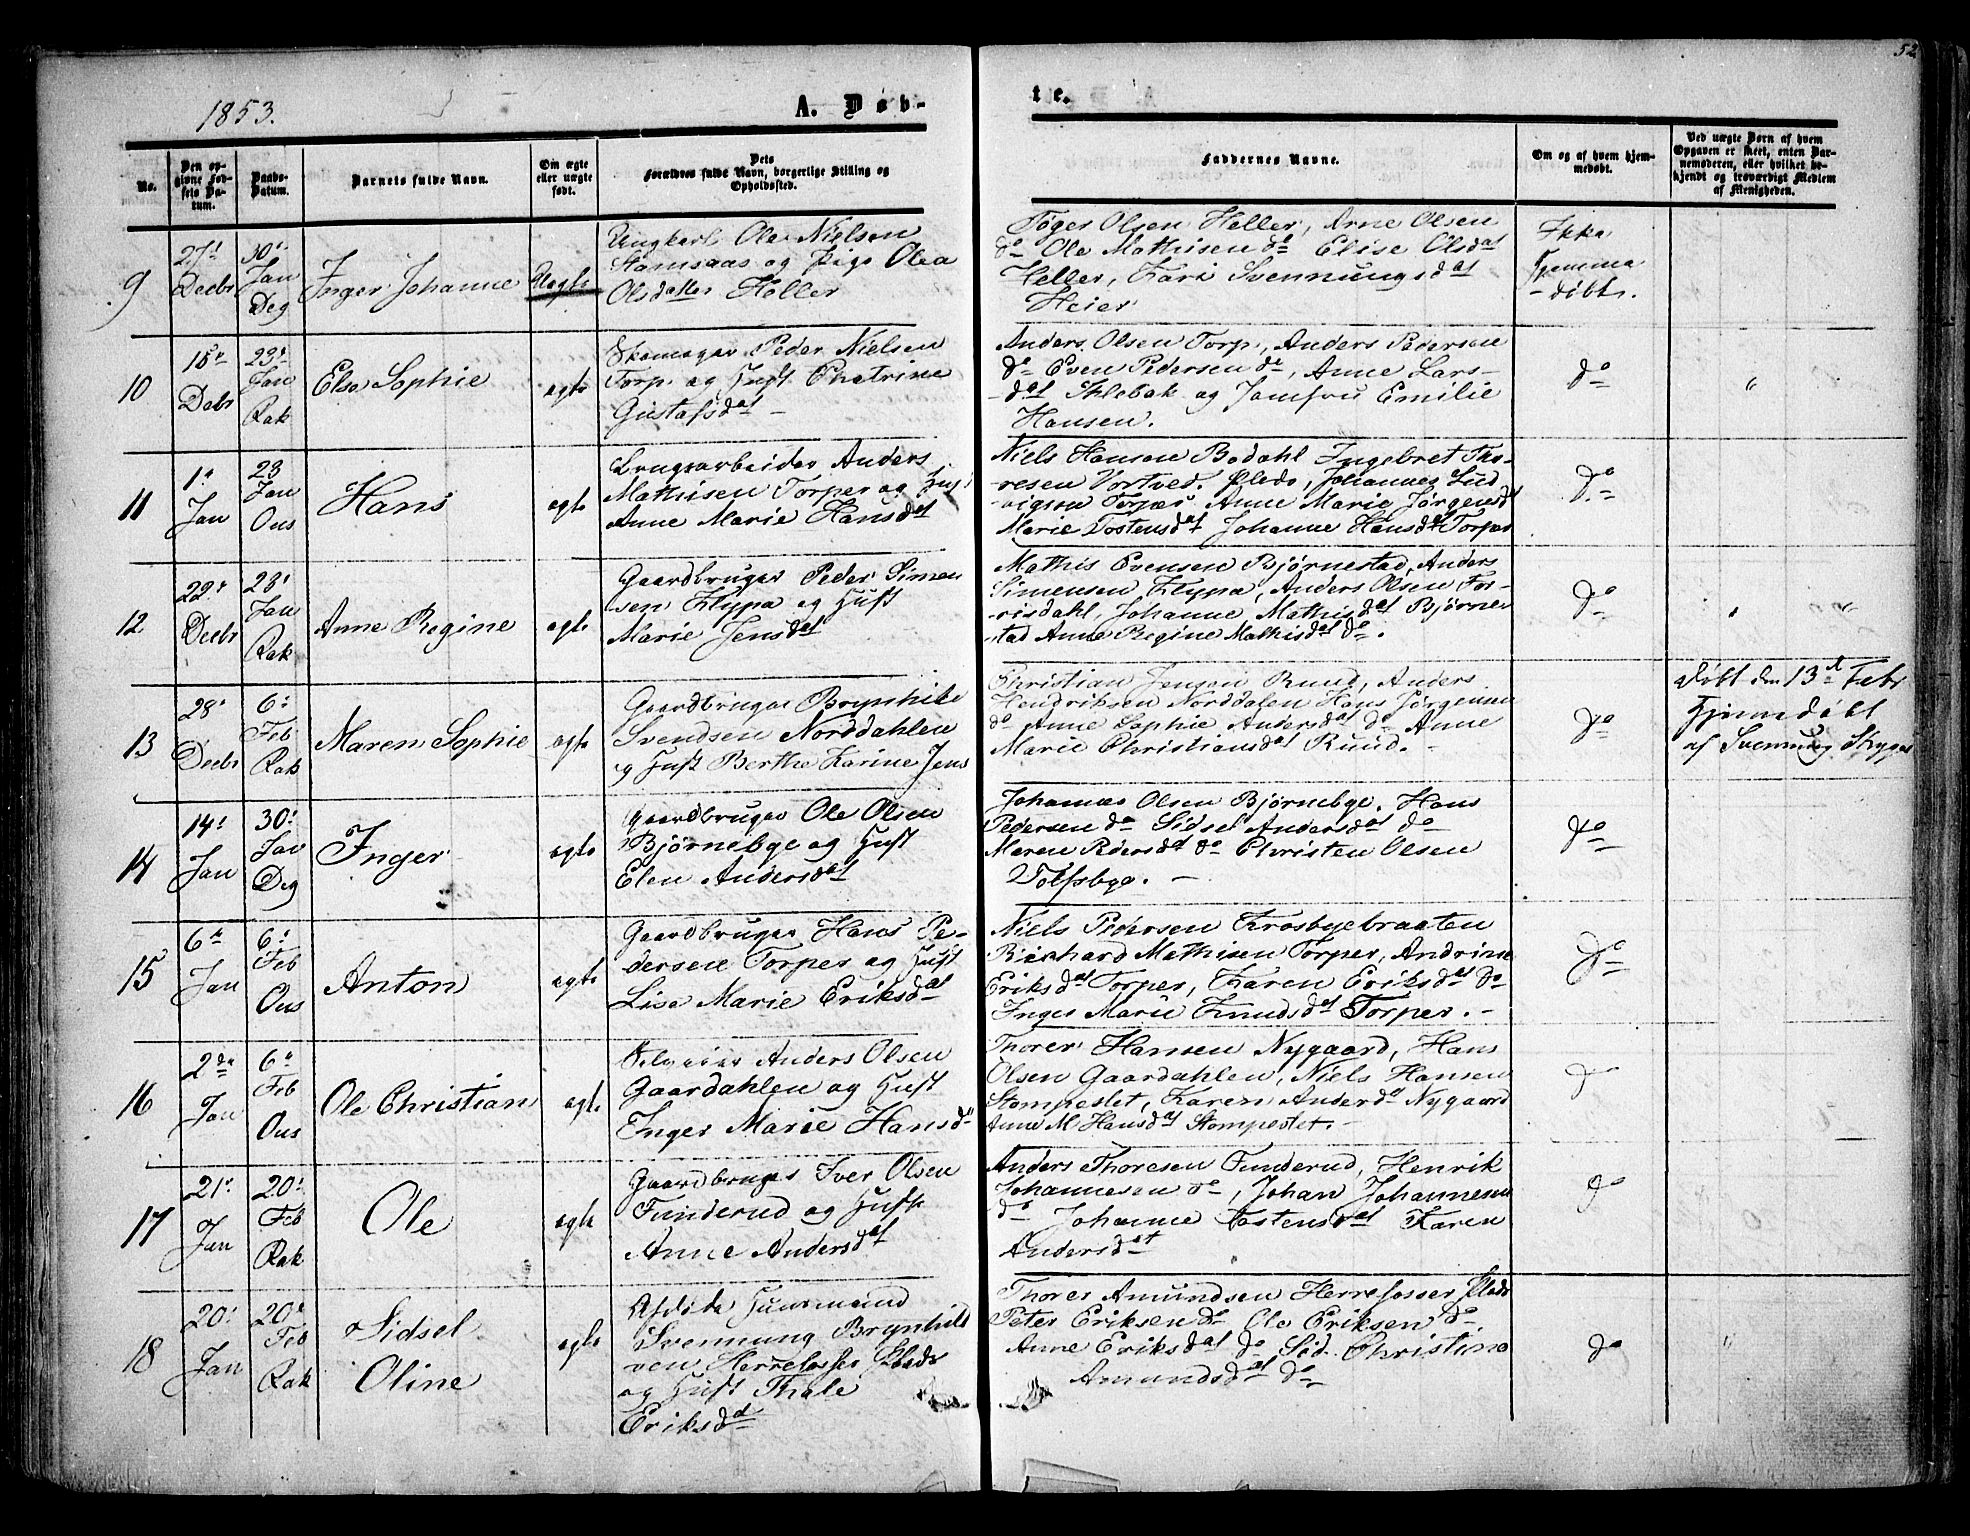 52
1853.
A. Døb-
te.
No.
Den op-
givne Fød-
sels Da-
tum.
Daabs-
Datum.
Barnets fulde Navn.
Om ægte
eller uægte
født.
Dets
Forældres fulde Navn, borgerlige Stilling og
Opholdssted.
Faddernes Navne.
Om og af hvem hjem-
medøbt.
Ved uægte Børn af hvem
Opgaven er skeet, enten Bar-
nemoderen, eller hvilket be-
kjendt og troværdigt Medlem
af Menigheden.
9
27
Decbr
30
Jan
Deg
Inger Johanne
Uægte
Ungkarl Ole Nielsen
og Pige Olea
Olsdatter Heller
Tøger Olsen Heller, Arne Olsen
do Ole Mathisen do Elise Olsdat
Heller, Kari Svennungsdat
Heier
Ikke
hjemme
døbt.
10
15
Debr
23
Jan
Rak
Else Sophie
ægte
Skomager Peder Nielsen
Torp og Hust Chatrine
Gustafsdat -
Anders Olsen Torp, Anders Pedersen
do Even Pedersen do, Anne Lars-
dat og Jomfru Emilie
Hansen.
do
"
11
1
Jan
23
Jan
Ous
Hans
ægte
Brugsarbeider Anders
Mathisen Torper og Hust
Anne Marie Hansdat
Niels Hansen Bodahl Ingebret Tho-
resen Vortved. Øleds, Johannes Lud
vigsen Torper Anne Marie Jørgensd
Marie Tostensdat Johanne Hansdat Torper
do
12
29
Decbr
23
Jan
Rak
Anne Regine
ægte
Gaardbruger Peder Simen
sen Klypa og Hust
Marie Jensdat
Mathis Evensen Bjørnestad, Anders
Simensen Klypa, Anders Olsen Tor-
risdahl, Johanne Mathisdat Bjørne
stad Anne Regine Mathisdat do.
do
"
13
28
Decbr
6
Feb
Rak
Maren Sophie
ægte
Gaardbruger
Svendsen Norddahlen
og Hust Berthe Karine Jens
Christian Jensen Ruud, Anders
Hendriksen Norddalen Hans Jørgensen
do Anne Sophie Andersdat do Anne
Marie Christiansdat Ruud.
do
døbt den 13d Febr
Hjemmedøbt
af Svennung
14
14
Jan
30
Jan
Deg
Inger
ægte
Gaardbruger Ole Olsen
Bjørnebye og Hust
Elen Andersdat
Johannes Olsen Bjørnebye. Hans
Pedersen do Sidsel Andersdat do
Maren Pedersdat do Christen Olsen
Tolfsbye. -
do
15
6
Jan
6
Feb
Ous
Anton
ægte
Gaardbruger Hans Pe-
dersen Torper og Hust
Lise Marie Eriksdat
Niels Pedersen Krosbyebraaten
Richard Mathisen Torper, Andrine
Eriksdat Torper, Karen Eriksdat do
Inger Marie Knudsdat Torper. -
do
16
2den
Jan
6
Feb
Ous
Ole Christian
ægte
Selveier Anders Olsen
Gaardahlen og Hust
Inger Marie Hansd
Thorer Hansen Nygaard, Hans
Olsen Gaardahlen, Niels Hansen
Stompeslet, Karen Andersd Nygaard
Anne M. Hansdat Stompeslet. -
do
17
21
Jan
20
Feb
Rak
Ole
ægte
Gaardbruger Iver Olsen
Funderud og Hust
Anne Andersdat
Anders Thoresen Funderud, Henrik
Johannesen do, Johan Johannesen
do Johanne Tostensdat Karen
Andersdat
do
18
20
Jan
20
Feb
Rak
Sidsel
Oline
ægte
Afdøde Huusmand
Svennung Brynhild
sen Herrefosser Øleds
og Hust Thale
Eriksd
Thorer Amundsen Herrefosser Øleds
Peter Eriksen do Ole Eriksen do
Anne Eriksdat do Sid. Christine
Amundsdat do
do
"